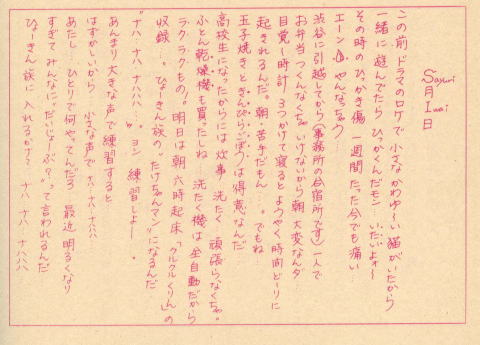 Sayuri Iwai
月 日
この前、ドラマのロケで小さなかわゆ〜い猫がいたから
一緒に遊んでたら ひっかくんだモン…いたいよォ〜
その時のひっかき傷 一週間たった今でも痛い
エーン やんなっちゃう…
渋谷に引越してから(事務所の合宿所です)一人で
お弁当つくんなくちゃいけないから朝 大変なんダ
目覚し時計 3つかけて寝るとようやく時間どーりに
起きれるんだ。朝、苦手だもん…。でもね
玉子焼きときんぴらごぼうは得意なんだ
高校生になったからには炊事、洗たく 頑張らなくちゃ。
ふとん乾燥機も買たしね 洗たく機は全自動だから
ラクラクもの!。明日は朝六時起床、「クルクルくりん」の
収録…。ひょーきん族の"たけちゃんマン"になるんだ
"ナハ ナハ ナハハハ
"ヨン 練習しよー。
あんまり大きな声で練習すると
はずかしいから…小さな声でナハナハナハハハ
あたし…ひとりで何やってんだろ 最近明るくなり
すぎてみんなに"だいじょーぶ?"って言われるんだ
ひょーきん族に入れるかナ? ナハ ナハ ナハハハ